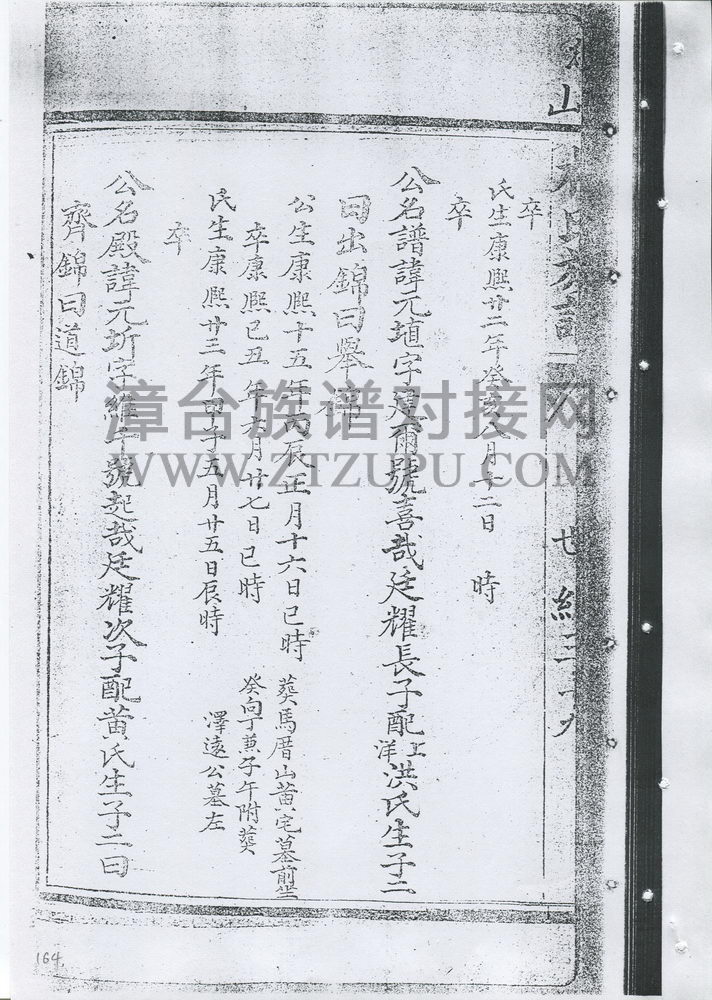 卒
氏生康熙廿二年癸亥八月十二日 時
卒
公名譜諱元埴字建爾號喜哉廷耀長子配上洋洪氏生子二
曰出錦曰舉錦
公生康熙十五年丙辰正月十六日巳時 葬馬厝山黃宅墓前坐
卒康熙己丑年六月廿七日巳時 癸向丁兼子午附葬
氏生康熙廿三年甲子五月廿五日辰時 澤遠公墓左
卒
公名殿諱元圻字維千號起哉廷耀次子配黃氏生子二曰
齊錦曰道錦
山
氏族譜
世紀三十九
164
漳台族谱对接网
WWW.ZTZUPU.COM